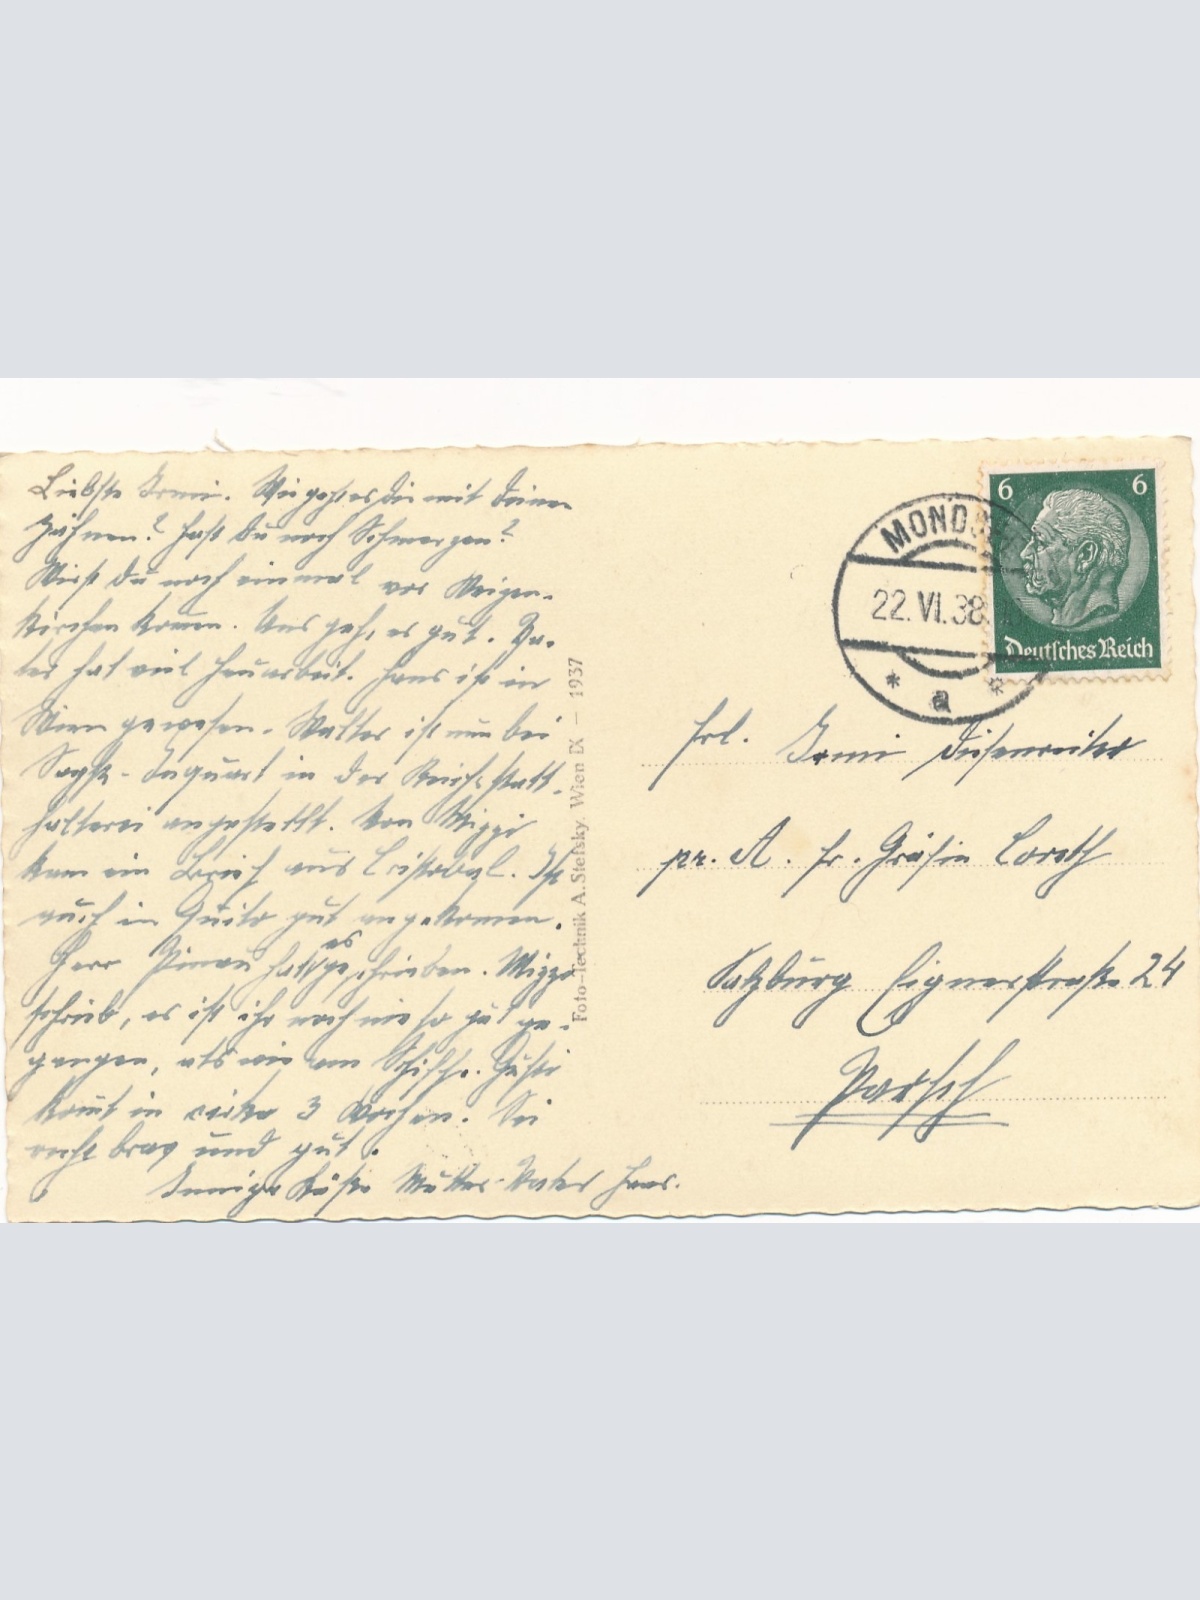 Liebste Irmi. Wie geht es Dir mit Deinen
Zähnen? Hast Du noch Schmerzen?
Wirst Du noch einmal vor Weizen-
kirchen komen. Uns geht es gut. Va-
ter hat viel Heuarbeit. Hans ist in
Wien gewesen. Walter ist nun bei
Seyß-Inquart in der Reichsstatt-
halterei angestellt. Von Mizzi
kam ein Brief aus Cristobal. Ist
auch in Quito gut angekomen.
Herr hat es geschrieben. Mizzi
schrieb, es ist ihr noch nie so gut ge-
gangen, als wie am Schiffe. Gusti
komt in cirka 3 Wochen. Sei
recht brav und gut.
Innige Küße Mutter Vater Hans.
Foto-Technik A. Stefsky, Wien IX – 1937
MONDSEE
22. VI. 38
* a *
6 6
Deutsches Reich
Frl. Irmi
pr. A. Fr. Gräfin
Salzburg Eignerstraße 24
Parsch